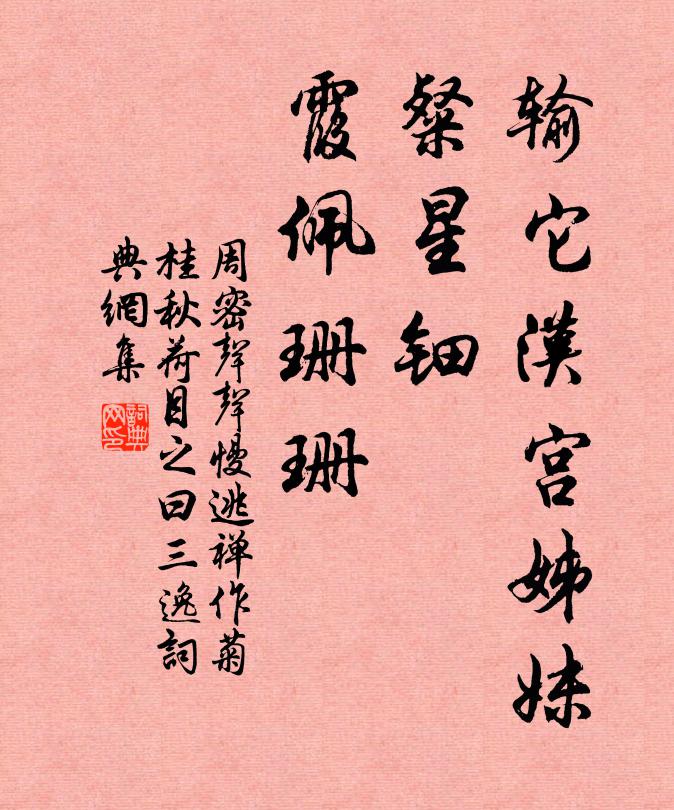 输它漢宫姊妹
粲星钿
霞佩珊珊
周密聲聲慢逃禅作菊
桂秋荷目之曰三逸詞
典網集
詞典
网印